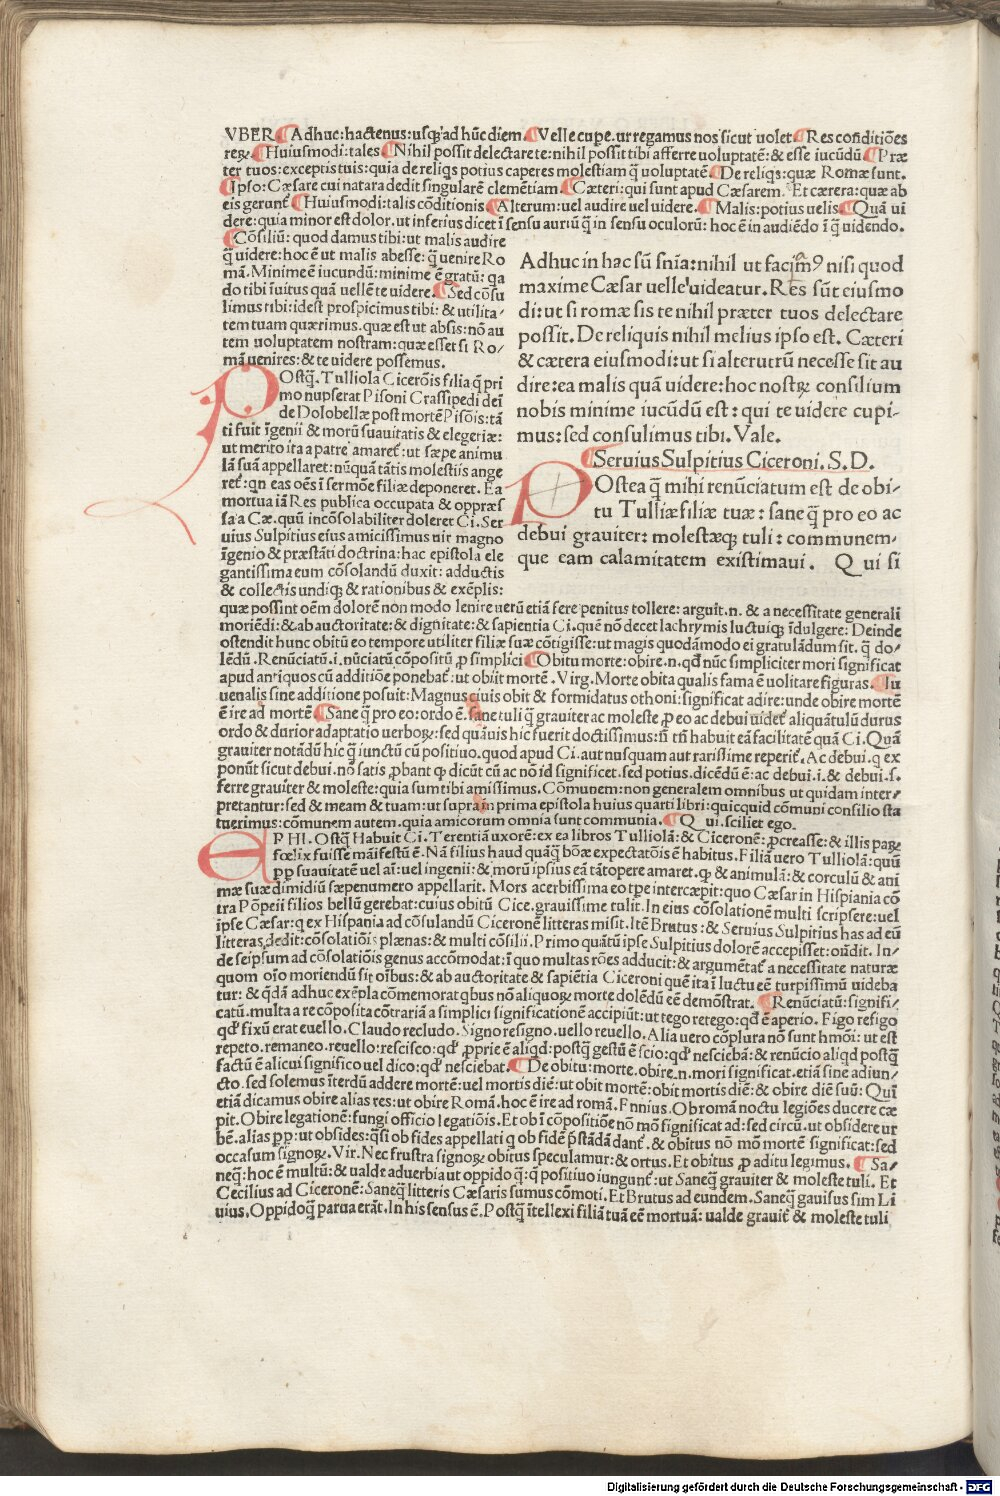 VBER ¶ Adhuc: hactenus: usq; ad hūc diem. ¶ Velle cupe. ut regamus nos sicut uolet ¶ Res conditiōes
reꝝ. ¶ Huiusmodi: tales ¶ Nihil possit delectare te: nihil possit tibi afferre uoluptatē: & esse iucūdū ¶ Præ
ter tuos: exceptis tuis: quia de reliqs potius caperes molestiam q̄ uoluptatē ¶ De reliqs: quæ Romæ sunt.
¶ Ipso: Cæsare cui natara dedit singularē clemētiam. ¶ Cæteri: qui sunt apud Cæsarem. Et cærera: quæ ab
eis gerunť ¶ Huiusmodi: talis cōditionis ¶ Alterum: uel audire uel uidere. ¶ Malis: potius uelis ¶ Quā ui
dere: quia minor est dolor. ut inferius dicet ī sensu auriū q̄ in sensu oculorū: hoc ē in audiēdo ī q̄ uidendo.
¶ Cōsiliū: quod damus tibi: ut malis audire
q̄ uidere: hoc ē ut malis abesse: q̄ uenire Ro
mā. Minime ē iucundū: minime ē gratū: qa
do tibi īuitus quā uellē te uidere. ¶ Sed cōsu
limus tibi: idest prospicimus tibi: & utilita-
tem tuam quærimus. quæ est ut absis: nō au
tem uoluptatem nostram: quæ esset si Ro-
mā uenires: & te uidere possemus.
POstq̄. Tulliola Cicerōis filia q̄ pri
mo nupserat Pisoni Crassipedi deī
de Dolobellæ post mortē Pisōis: tā
ti fuit īgenii & morū suauitatis & elegeriæ:
ut merito ita a patre amareť: ut sæpe animu
lā suā appellaret: nūquā tātis molestiis ange
reť: qn eas oēs ī sermōe filiæ deponeret. Ea
mortua iā Res publica occupata & oppræs
sa a Cæ. quū incōsolabiliter doleret Ci. Ser
uius Sulpitius eius amicissimus uir magno
īgenio & præstāti doctrina: hac epistola ele
gantissima eum cōsolandū duxit: adductis
& collectis undiq; & rationibus & exēplis:
Adhuc in hac sū snīa: nihil ut facim9 nisi quod
maxime Cæsar uelle uideatur. Res sūt eiusmo
di: ut si romæ sis te nihil præter tuos delectare
possit. De reliquis nihil melius ipso est. Cæteri
& cætera eiusmodi: ut si alterutrū necesse sit au
dire: ea malis quā uidere: hoc nostꝝ consilium
nobis minime iucūdū est: qui te uidere cupi-
mus: sed consulimus tibi. Vale.
¶ Seruius Sulpitius Ciceroni. S. D.
POstea q̄ mihi renūciatum est de obi-
tu Tulliæ filiæ tuæ: sane q̄ pro eo ac
debui grauiter: molestæq; tuli: communem-
que eam calamitatem existimaui. Qui si
quæ possint oēm dolorē non modo lenire uerū etiā fere penitus tollere: arguit. n. & a necessitate generali
moriēdi: & ab auctoritate: & dignitate: & sapientia Ci. quē nō decet lachrymis luctuiq; īdulgere: Deinde
ostendit hunc obitū eo tempore utiliter filiæ suæ cōtigisse: ut magis quodāmodo ei gratulādum sit. q̄ do-
lēdū. Renūciatū. i. nūciatū cōpositū ꝓ simplici ¶ Obitu morte: obire. n. qd̄ nūc simpliciter mori significat
apud antiquos cū additiōe ponebať: ut obiit mortē. Virg. Morte obita qualis fama ē uolitare figuras. ¶ Iu
uenalis sine additione posuit: Magnus ciuis obit & formidatus othoni: significat adire: unde obire mortē
ē ire ad mortē ¶ Sane q̄ pro eo: ordo ē. sane tuli q̄ grauiter ac moleste ꝓ eo ac debui uideť aliquātulū durus
ordo & durior adaptatio uerboꝝ: sed quāuis hic fuerit doctissimus: n̄ tn̄ habuit eā facilitatē quā Ci. Quā
grauiter notādū hic q̄ iunctū cū positiuo. quod apud Ci. aut nusquam aut rarissime reperiť. Ac debui. q ex
ponūt sicut debui. nō satis ꝓbant qꝫ dicūt cū ac nō id significet. sed potius. dicēdū ē: ac debui. i. & debui. s.
ferre grauiter & moleste: quia sum tibi amissimus. Cōmunem: non generalem omnibus ut quidam inter-
pretantur: sed & meam & tuam: ut supra in prima epistola huius quarti libri: quicquid cōmuni consilio sta
tuerimus: cōmunem autem. quia amicorum omnia sunt communia. ¶ Qui. sciliet ego.
EPHI. Ostq̄ Habuit Ci. Terentiā uxorē: ex ea libros Tulliolā: & Ciceronē: ꝓcreasse: & illis paꝝ
fœlix fuisse māifestū ē. Nā filius haud quāq̄ bōæ expectatōis ē habitus. Filiā uero Tulliolā: quū
ꝓp suauitatē uel aī: uel ingenii: & morū ipsius eā tātopere amaret. qꝫ & animulā: & corculū & ani
mæ suæ dimidiū sæpenumero appellarit. Mors acerbissima eo tpe intercæpit: quo Cæsar in Hispiania cō
tra Pōpeii filios bellū gerebat: cuius obitū Cice. grauissime tulit. In eius cōsolationē multi scripsere: uel
ipse Cæsar: q ex Hispania ad cōsulandū Ciceronē litteras misit. Itē Brutus: & Seruius Sulpitius has ad eū
litteras dedit: cōsolatiōis plænas: & multi cōsilii. Primo quātū ipse Sulpitius dolorē accepisset: oñdit. In-
de seipsum ad cōsolatiōis genus accōmodat: ī quo multas rōes adducit: & argumētať a necessitate naturæ
quom oīo moriendū sit oībus: & ab auctoritate & sapiētia Ciceroni quē ita ī luctu eē turpissimū uideba
tur: & q̄dā adhuc exēpla cōmemorat qbus nō aliquoꝝ morte dolēdū eē demōstrat. ¶ Renūciatū: signifi-
catū. multa a re cōposita cōtrariā a simplici significationē accipiūt: ut tego retego: qd̄ ē aperio. Figo refigo
qd̄ fixū erat euello. Claudo recludo. Signo resigno. uello reuello. Alia uero cōplura nō sunt hmōi: ut est
repeto. remaneo. reuello: rescisco: qd̄ ꝓprie ē aliqd: postq̄ gestū ē scio: qd̄ nesciebā: & renūcio aliqd postq̄
factū ē alicui significo uel dico: qd̄ nesciebat. ¶ De obitu: morte. obire. n. mori significat. etiā sine adiun-
cto. sed solemus īterdū addere mortē: uel mortis diē: ut obit mortē: obit mortis diē: & obire diē suū: Quī
etiā dicamus obire alias res: ut obire Romā. hoc ē ire ad romā. Ennius. Ob romā noctu legiōes ducere cæ
pit. Obire legationē: fungi officio legatiōis. Et ob ī cōpositiōe nō mō significat ad: sed circū. ut obsidere ur
bē. alias ꝓp: ut obsides: q̄si ob fides appellati q ob fidē p̄stādā danť. & obitus nō mō mortē significat: sed
occasum signoꝝ. Vir. Nec frustra signoꝝ obitus speculamur: & ortus. Et obitus ꝓ aditu legimus. ¶ Sa-
neq̄: hoc ē multū: & ualde aduerbia ut oppido q̄: q̄ positiuo iungunť: ut Saneq̄ grauiter & moleste tuli. Et
Cecilius ad Ciceronē: Saneq̄ litteris Cæsaris sumus cōmoti. Et Brutus ad eundem. Saneq̄ gauisus sim Li
uius. Oppidoq̄ parua erāt. In his sensus ē. Postq̄ ītellexi filiā tuā eē mortuā: ualde grauiť & moleste tuli
Digitalisierung gefördert durch die Deutsche Forschungsgemeinschaft - DFG